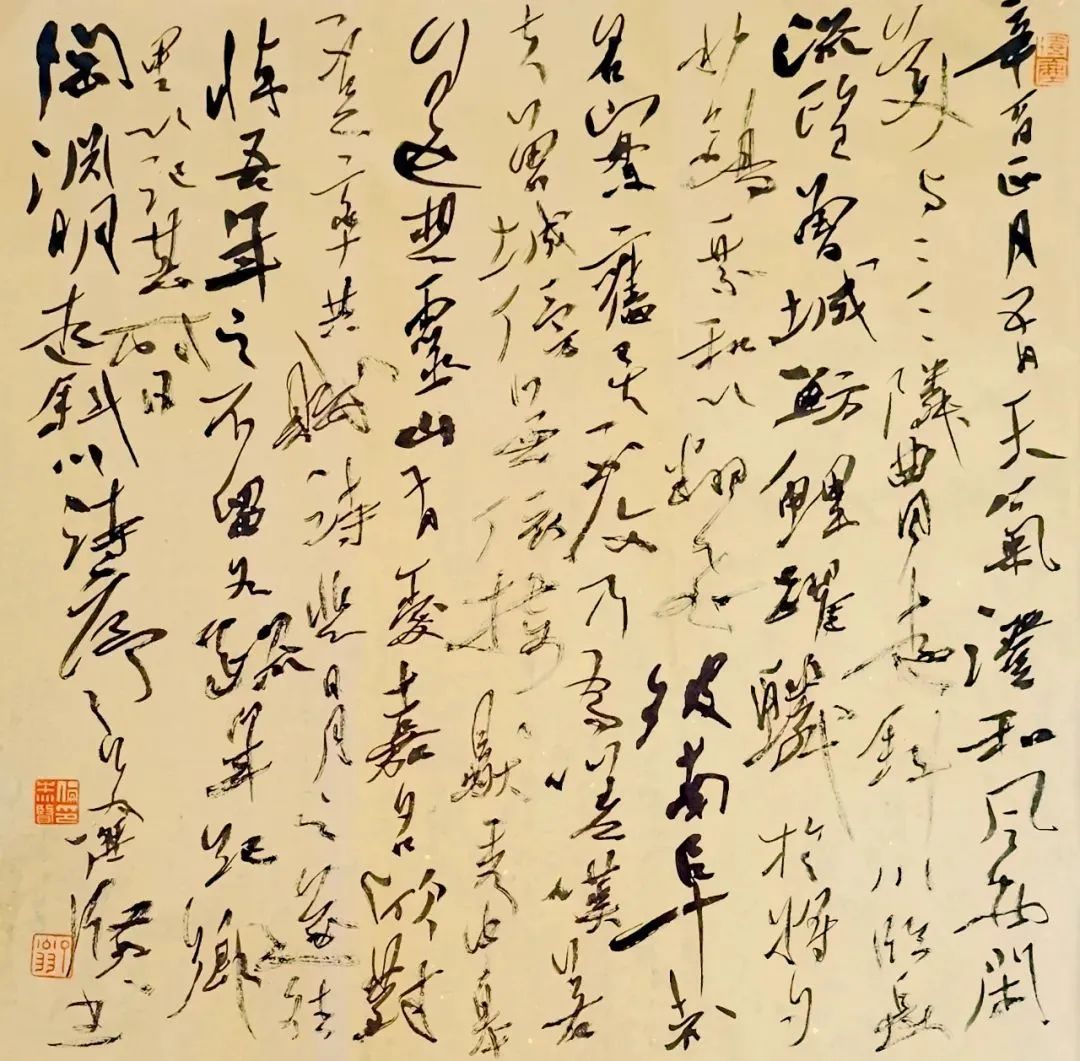 辛酉正月五日天氣澄和風物閑
美与二三隣曲同遊斜川臨長
流望曾城魴鯉躍鱗於將夕
水鷗乘和以翻飛彼南阜者
名山實舊矣不復乃為嗟嘆若
夫曾城傍無依接獨秀中皋
遙想靈山有愛嘉名欣對
不足率共賦詩悲日月之遂往
悼吾年之不留各疏年紀鄉
里以記其時日
陶淵明遊斜川詩序 書